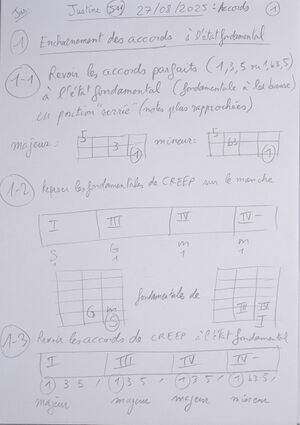 Justine 27/08/2025: Accords 1
1 Enchaînement des accords à l'état fondamental
1-1 Revoir les accords parfaits (1, 3, 5 ou 1, b3, 5)
à l'état fondamental (fondamentale à la basse)
en position "serrée" (notes plus rapprochées)
majeur: 5 3 1 mineur: 5 b3 1
1-2 Reposer les fondamentales de CREEP sur le manche
I III IV IV-
S G m m
1 1 1 1
G m S fondamentales de III IV I
1-3 Revoir les accords de CREEP à l'état fondamental
I III IV IV-
1 3 5, 1 3 5, 1 3 5, 1 b3 5,
majeur majeur majeur mineur